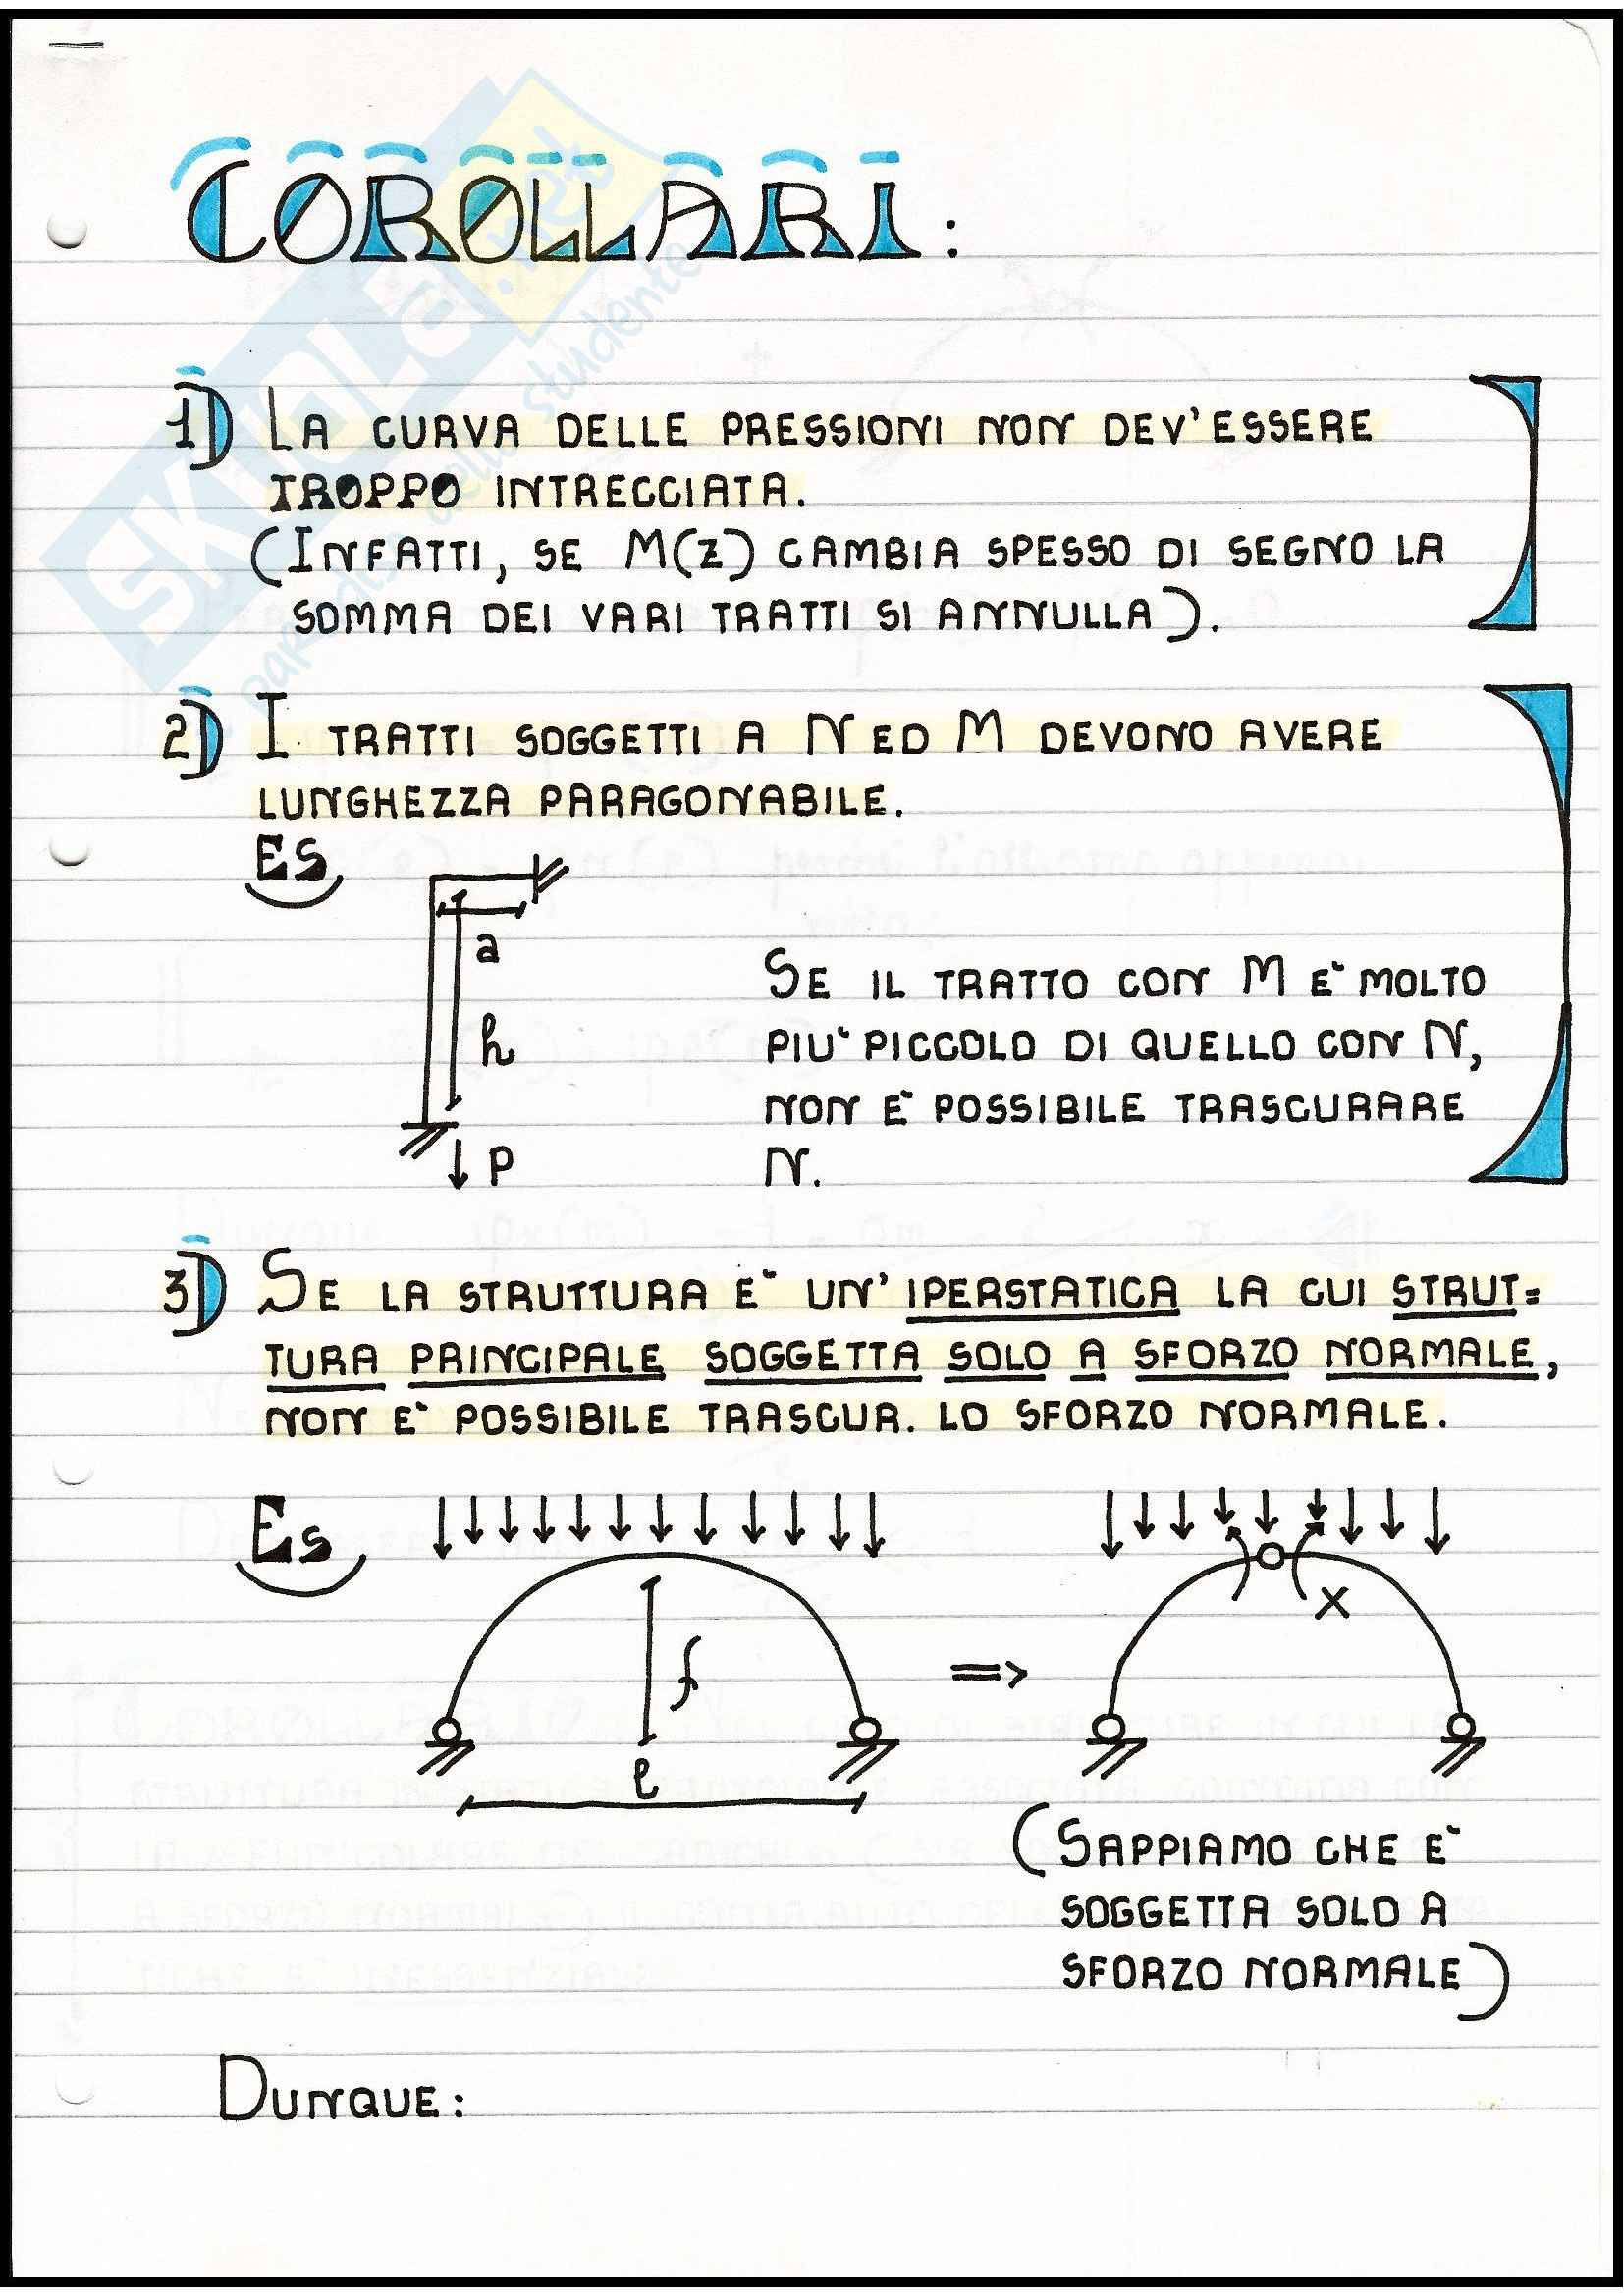 COROLLARI:
1) LA CURVA DELLE PRESSIONI NON DEV'ESSERE
TROPPO INTRECCIATA.
(INFATTI, SE M(Z) CAMBIA SPESSO DI SEGNO LA
SOMMA DEI VARI TRATTI SI ANNULLA).
2) I TRATTI SOGGETTI A N ED M DEVONO AVERE
LUNGHEZZA PARAGONABILE.
ES
a
h
P
SE IL TRATTO CON M E` MOLTO
PIU` PICCOLO DI QUELLO CON N,
NON E` POSSIBILE TRASCURARE
N.
3) SE LA STRUTTURA E` UN' IPERSTATICA LA CUI STRUT=
TURA PRINCIPALE SOGGETTA SOLO A SFORZO NORMALE,
NON E` POSSIBILE TRASCUR. LO SFORZO NORMALE.
Es
f
l
=>
X
(SAPPIAMO CHE E`
SOGGETTA SOLO A
SFORZO NORMALE)
DUNQUE:
SKUOLA.net
paradiso dello studente